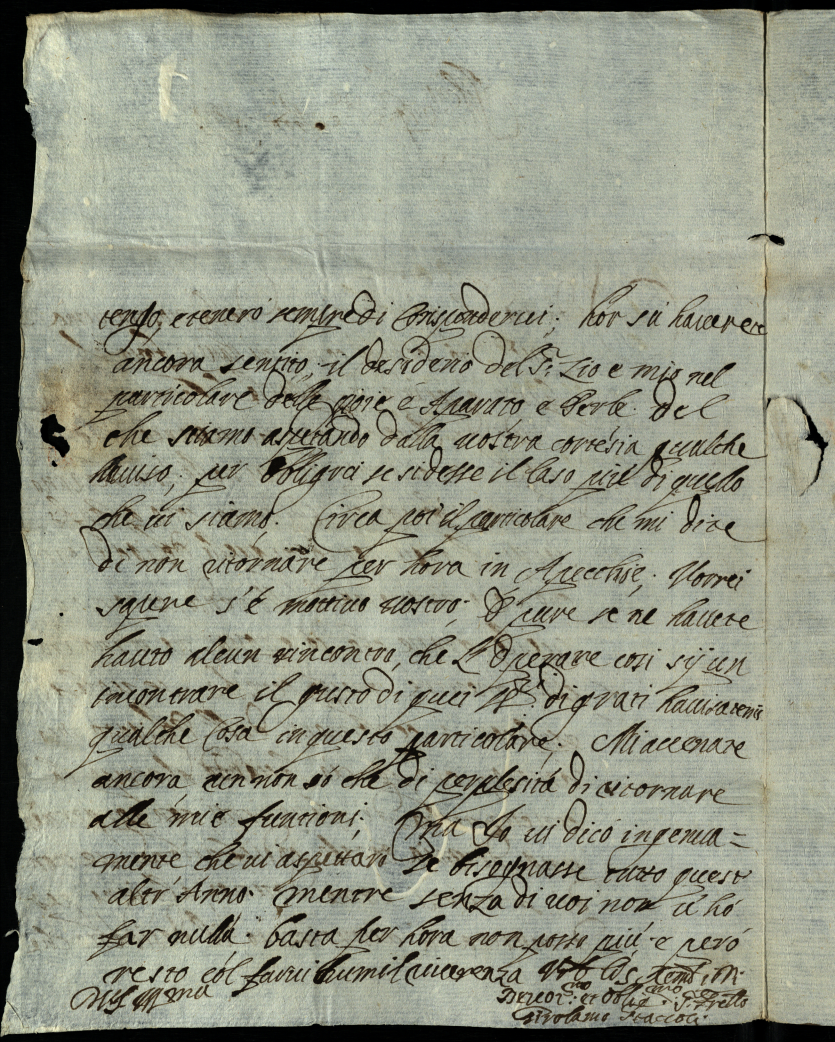 tengo, e tenerò sempre di Corrisponderui; hor sù hauerete
ancora sentito, il desiderio del Sr. Zio e mio nel
particolare delle gioie e Aparato e Perle. del
che stiamo aspetando dalla uostra cortesia qualche
Auiso, per obligarci se si desse il Caso più di quello
che ui siamo. Circa poi il particolare che mi dite
di non ritornare per hora in Apecchie, Vorrei
sapere s'è mottiuo uostro, ò pure se ne hauete
hauto alcun rincontro, che l'operare così sij un
incontrare il gusto di quei di grati hauisatemi
qualche Cosa in questo particolare; Mi accenate
ancora un non sò che di perplesità di ritornare
alle mie funtioni; ma Io ui dico ingenua=
mente che ui aspettarò se bisognasse tutto questo
altr' Anno. mentre senza di uoi non ui hò
far nulla. basta per hora non posso più e però
resto col farui humil riuerenza
Girolamo